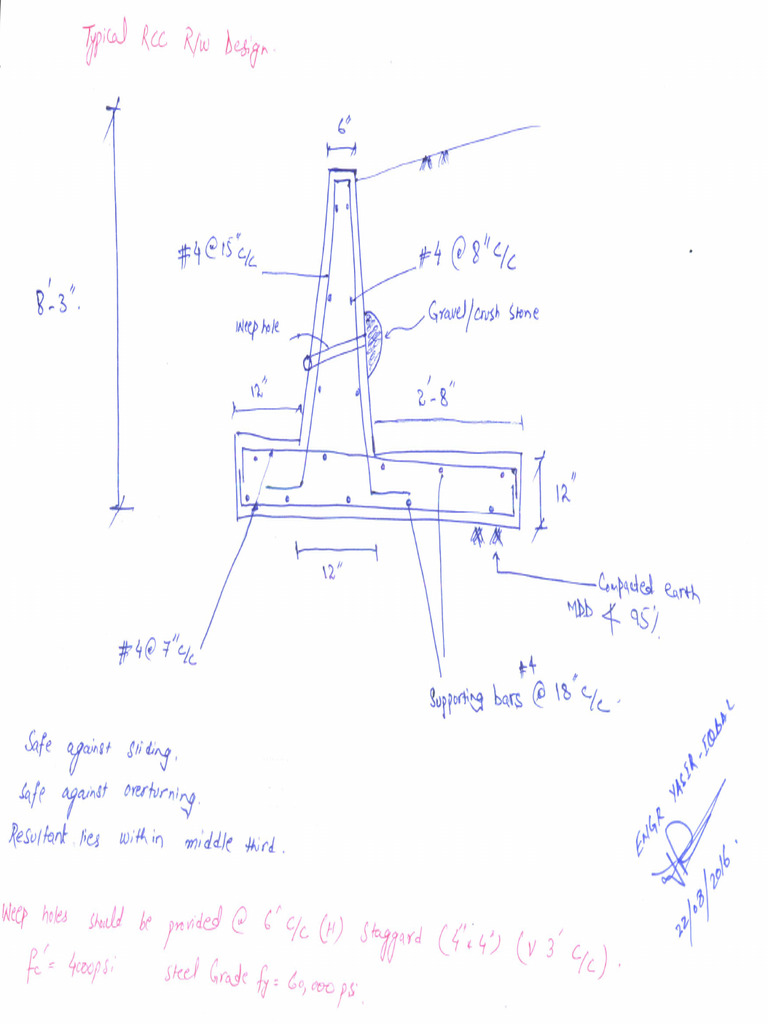 Typical RCC R/W Design.
6"
#4 @ 15" c/c
#4 @ 8" c/c
8'-3".
weep hole
Gravel/crush stone
12"
2'-8"
12"
12"
Compacted earth
MDD ≮ 95%
#4 @ 7" c/c
#4
Supporting bars @ 18" c/c.
Safe against sliding.
Safe against overturning.
Resultant lies within middle third.
ENGR YASIR-IQBAL
22/08/2016.
Weep holes should be provided @ 6' c/c (H) staggard (4"i4') (V 3' c/c).
fc' = 4000psi steel Grade fy = 60,000psi.